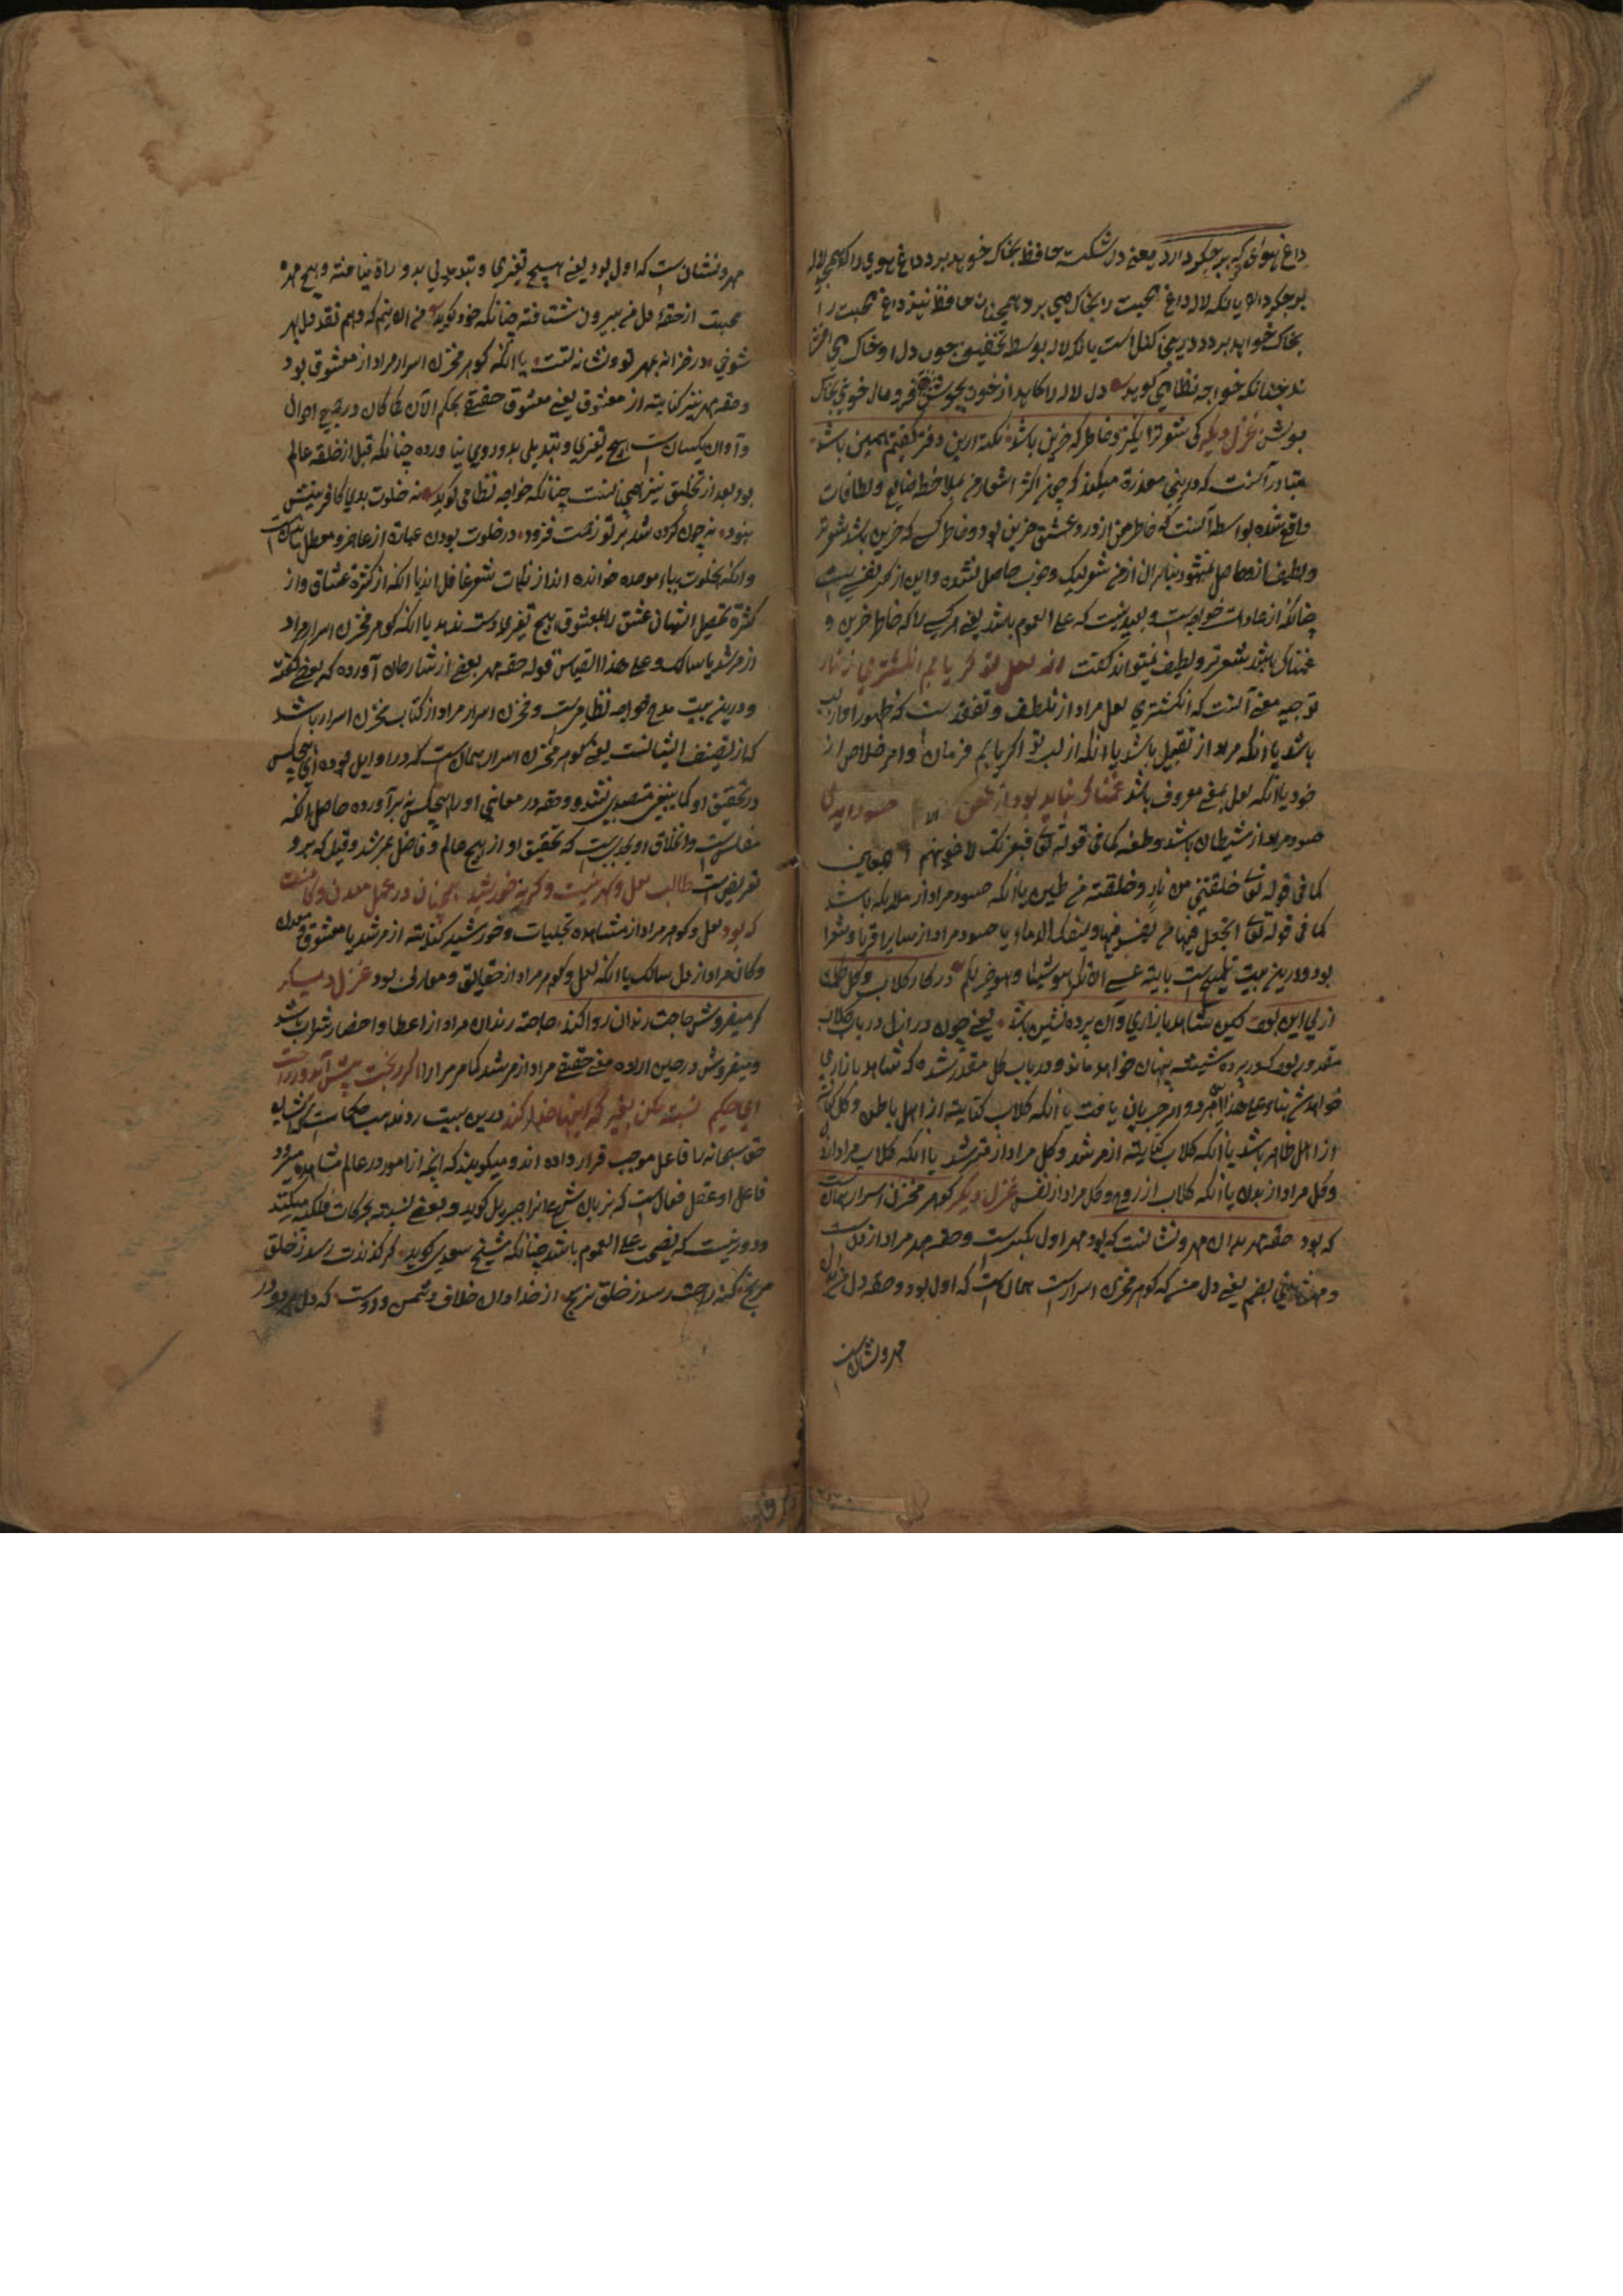 داغ هوای که بر جگر دارد یعنی دل شکسته حافظ بخاک خواهد برد داغ هوی را که همچو لاله
بر جگر دارد یا آنکه لاله داغ محبت را بخاک می برد همچنان حافظ نیز داغ محبت را
بخاک خواهد برد یا آنکه لاله بواسطه تخفیف چون دل او خاک
چنانکه خواجه نظامی گوید دل لاله را کامد از خون بجوش فرو مال خونی بخاک
بپوش غزل دیگر کی شعر تر انگیزد خاطر که حزین باشد یک نکته ازین دفتر گفتیم همین باشد
متبادر آنست که درینجا معذرة میکند که چون اکثر اشعار من بملاحظه صنایع و لطافات
واقع نشده بواسطه آنست که خاطر من از درد عشق حزین بود و خاطر کسی که حزین باشد شعر تر
و لطیف ازو حاصل نمیشود بنابران از من شعر نیک و خوب حاصل نشده و این از کسر نفسی است
چنانکه از عادات خواجه است و بعید نیست که علی العموم باشد یعنی هر کسی را که خاطر حزین و
غمناک باشد شعر تر و لطیف نمیتواند گفت از لعل تو گر یابم انگشتری زنهار
توجیه معنی آنست که انگشتری لعل مراد از تلطف و تفقد است که ظهور او از لب
باشد یا آنکه مراد از تقبیل باشد یا آنکه از لب تو اگر یابم فرمان و امر خلاص از
خود یا آنکه لعل بمعنی معروف باشد غمناک نباید بود از طعن حسود ای دل
حسود مراد از شیطان باشد و طعنه کما فی قوله تعالی فبعزتک لاغوینهم اجمعین
کما فی قوله تعالی خلقتنی من نار و خلقته من طین یا آنکه حسود مراد از ملایکه باشد
کما فی قوله تعالی اتجعل فیها من یفسد فیها و یسفک الدماء یا حسود مراد از سایر اقربا و شعرا
بود و درین بیت تلمیح است بآیة عسی ان تکرهوا شیئا و هو خیر لکم در کار گلاب و گل حکم
ازلی این بود کین شاهد بازاری وان پرده نشین باشد یعنی چون در ازل در باب گلاب
مقدور بود که در پرده شیشه پنهان خواهد ماند و در باب گل مقدر شده که شاهد بازاری
خواهد شد بناء علی هذا هر دو امر جریانی یافت یا آنکه گلاب کنایته از اهل باطن و گل کنایه
از اهل ظاهر باشد یا آنکه گلاب کنایته از مرشد و گل مراد از مسترشد یا آنکه گلاب مراد از
و گل مراد از بدن یا آنکه گلاب از روح و گل مراد از نفس غزل دیگر گوهر مخزن اسرار همانست
که بود حقه مهر بدان مهر و نشانست که بود مهر اول بکسر است و حقه مهر مراد از دل است
و مهر ثانی بضم یعنی دل من که گوهر مخزن اسرارست همان است که اول بود و حقه دل من بدان
مهر و نشان است
مهر و نشان است که اول بود یعنی هیچ تغیری و تبدیلی بدو راه نیافته و هیچ مهره
محبت از حقه دل من بیرون نشتافته چنانکه خود گوید من آن نیم که دهم نقد دل بهر
شوخی در خزانه بمهر تو و نشانه تست یا آنکه گوهر مخزن اسرار مراد از معشوق بود
و حقه مهر نیز کنایته از معشوق یعنی معشوق حقیقی بحکم الآن کما کان در جمیع احوال
و آوان یکسان است هیچ تغیری و تبدیلی بدو روی نیاورده چنانکه قبل از خلقه عالم
بود بعد از تخلیق نیز همان است چنانکه خواجه نظامی گوید نه خلوت بدی کافرینش
نبود نه چون کرده شد بر تو زحمت فزود در خلوت بودن عبارة از عاجز و معطل
و آنکه بخلوت بباء موحده خوانده اند از نکات شعر غافل اند یا آنکه از کثرة عشاق و از
کثرة تحصیل التهاب عشق را بمعشوق هیچ تغیری دست ندهد یا آنکه گوهر مخزن اسرار مراد
از مرشد یا سالک و علی هذا القیاس قوله حقه مهر بعضی از شارحان آورده که بعضی گفته
و درین بیت مدح خواجه نظامی است و مخزن اسرار مراد از کتاب مخزن اسرار باشد
که از تصنیف ایشانست یعنی گوهر مخزن اسرار همان است که در اوایل بوده ای هیچکس
در تحقیق او کما ینبغی متصدی نشد و حقه در معانی او را هیچکس نه برآورده حاصل آنکه
مغلق است و اغلاق او بحدیست که تحقیق او از هیچ عالم و فاضل بر نشد و قیل که برو
تعریض است طالب لعل و گهر نیست وگرنه خورشید همچنان در عمل معدن و کانست
که بود لعل و گوهر مراد از مشاهده تجلیات و خورشید کنایته از مرشد یا معشوق و معدن
و کان مراد از دل سالک یا آنکه لعل و گوهر مراد از حقایق و معارف بود غزل دیگر
گر میفروش حاجت رندان روا کند حاجته رندان مراد از اعطا و احضار شراب باشد
و میفروش درحین اراده معنی حقیقی مراد از مرشد کما مر مرارا گر رنج پیش آید و گر راحت
ای حکیم نسبت مکن بغیر که اینها خدا کند درین بیت رد مذهب حکماست که ایشان
حق سبحانه را فاعل موجب قرار داده اند و میگویند که آنچه از امور در عالم مشاهده میرود
فاعل او عقل فعال است که بزبان شرع آنرا جبریل گوید و بعضی نسبة بحرکات فلکیه میکنند
و دور نیست که نصیحت علی العموم باشد چنانکه شیخ سعدی گوید گر گزندت رسد ز خلق
مرنج که نه راحت رسد ز خلق نه رنج از خدا دان خلاف دشمن و دوست که دل هر دو در